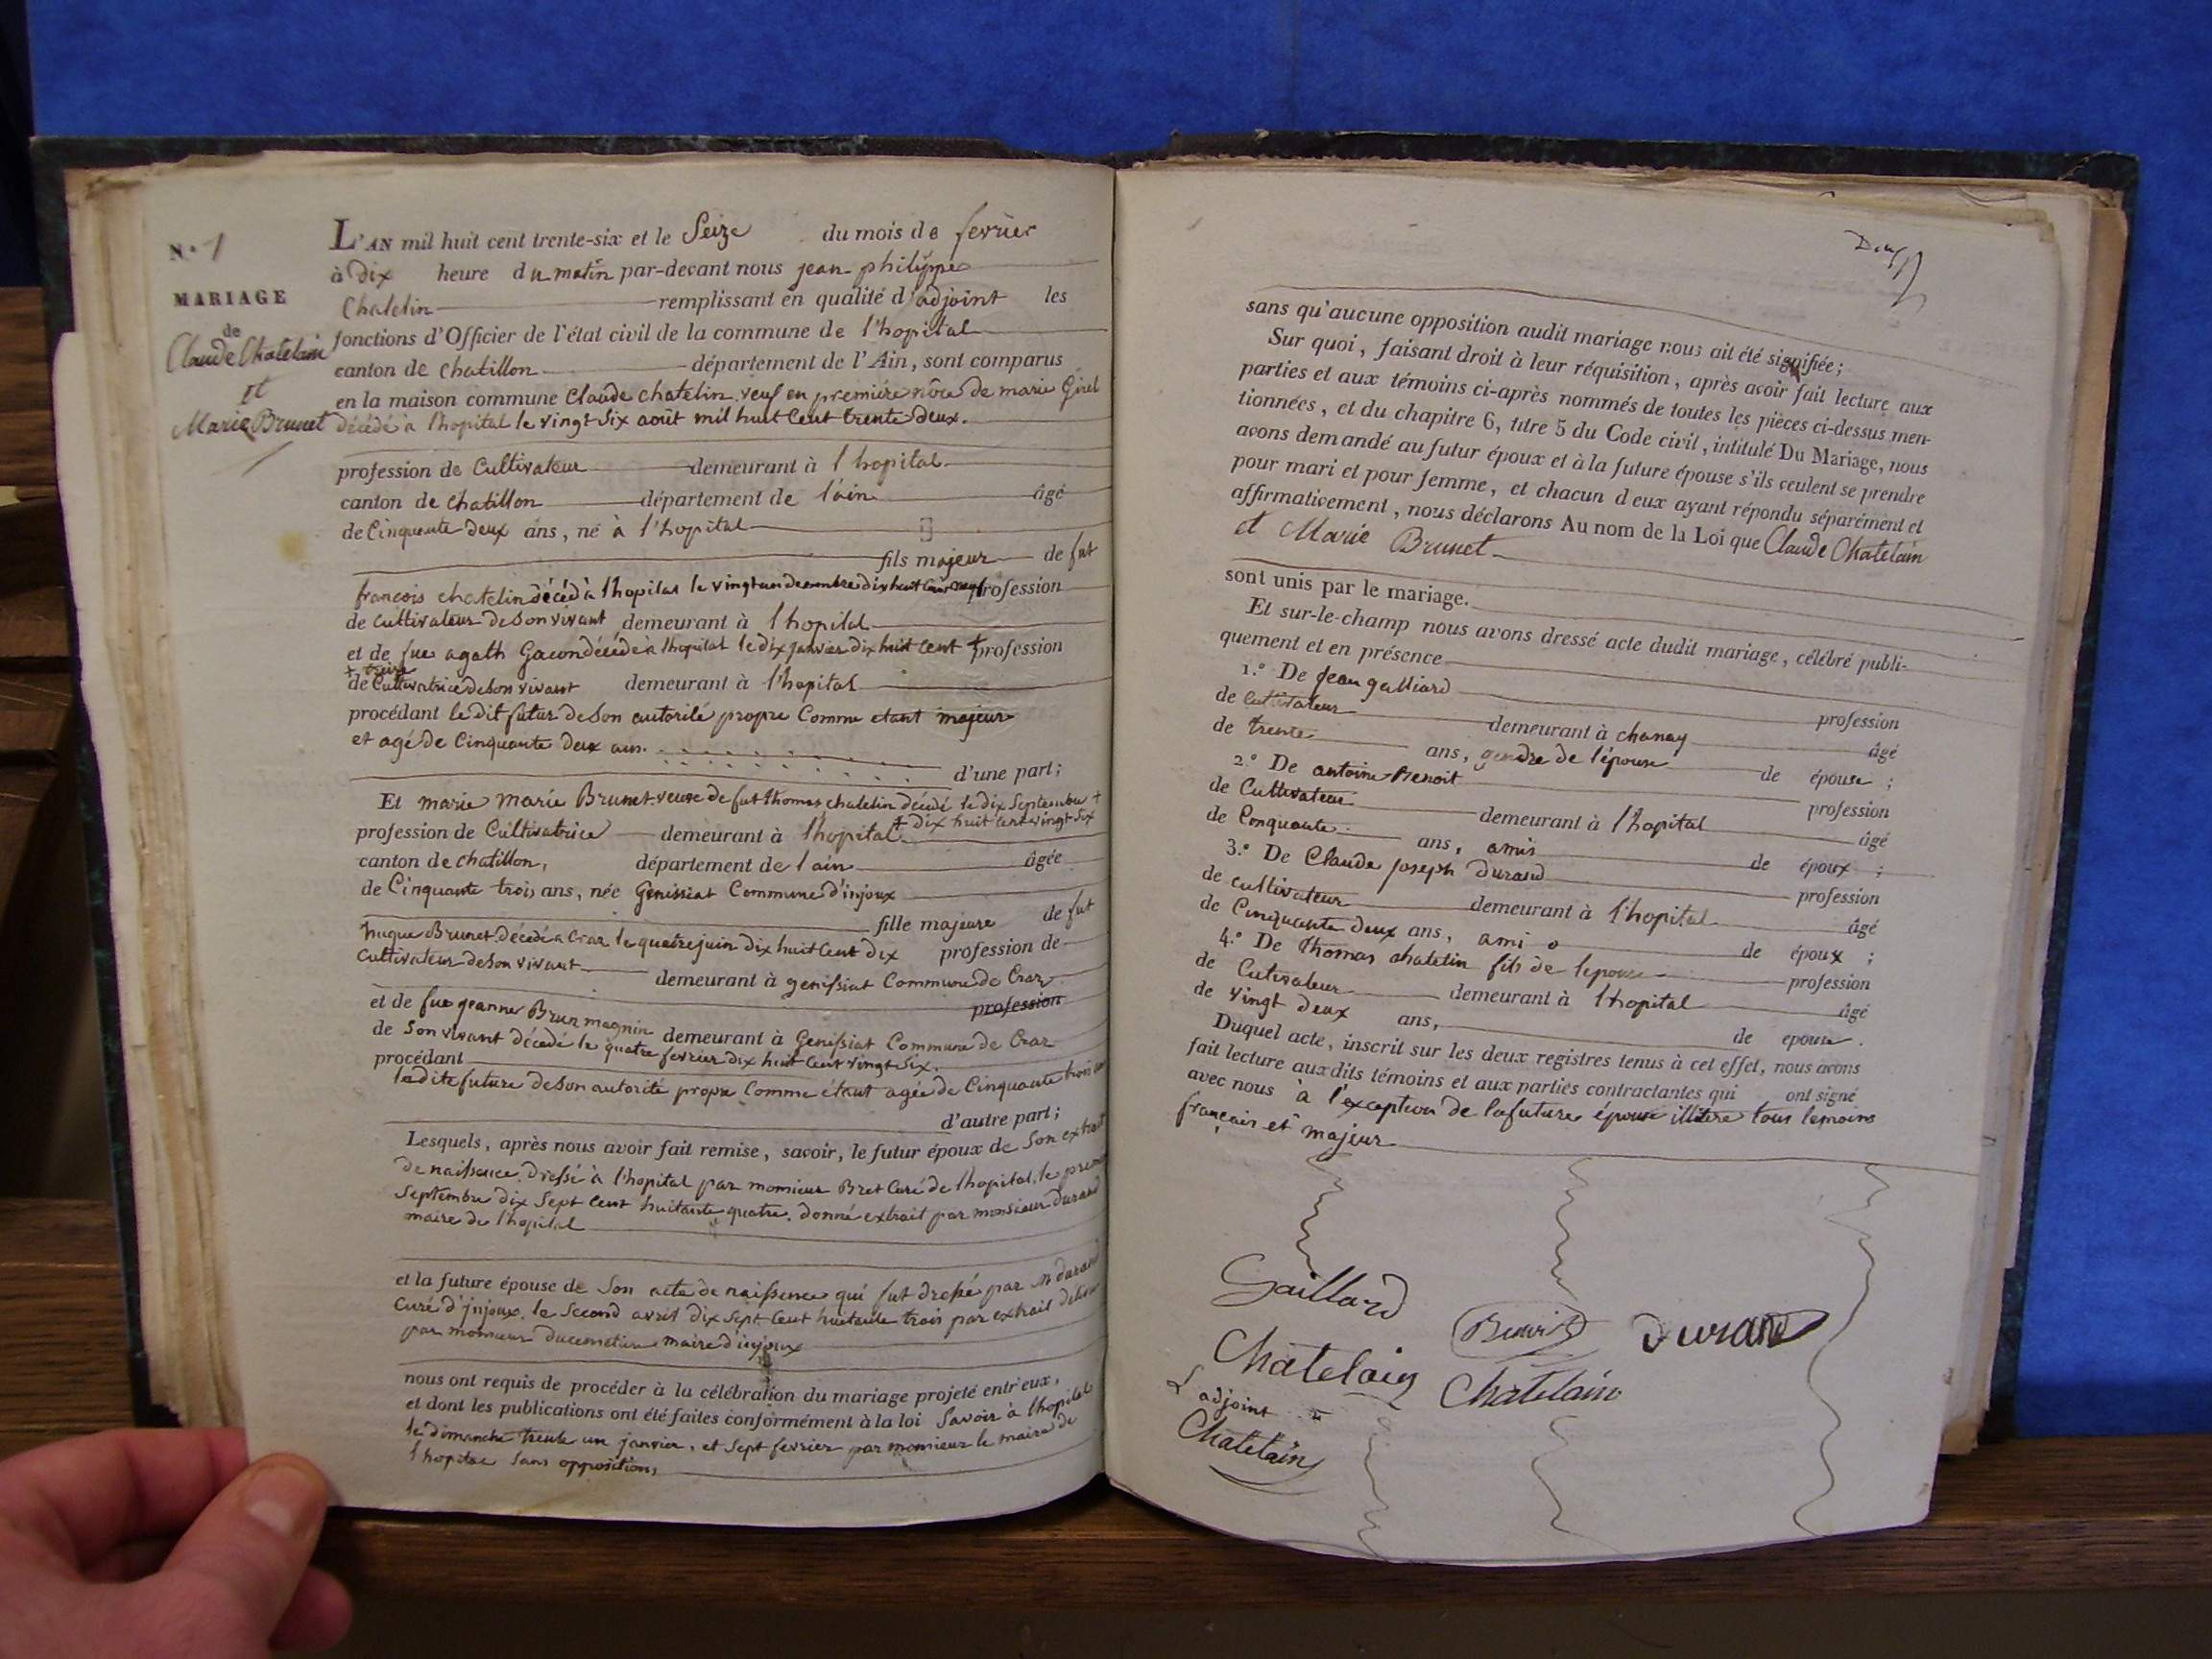 N.° 1
MARIAGE
de
Claude Chatelain
et
Marie Brunet
L'AN mil huit cent trente-six et le Seize du mois de fevrier
à Dix heure du matin par-devant nous jean philippe
Chatelin remplissant en qualité d'adjoint les
fonctions d'Officier de l'état civil de la commune de l'hopital
canton de chatillon département de l'Ain, sont comparus
en la maison commune Claude chatelin veuf en première nôce de marie Girel
décédé à l'hopital le vingt Six août mil huit Cent trente Deux.
profession de Cultivateur demeurant à l'hopital
canton de chatillon département de l'ain âgé
de Cinquante Deux ans, né à l'hopital
fils majeur de fut
francois chatelin décédé à l'hopital le vingt un decembre dix huit Cent neuf profession
de cultivateur de Son vivant demeurant à l'hopital
et de fue agath Gacon décédé à l'hopital le Dix janvier dix huit Cent + profession
+ treize
de Cultivatrice de Son vivant demeurant à l'hopital
procédant le dit futur de Son autorité propre Comme etant majeur
et agé de Cinquante deux ans.
d'une part;
Et marie marie Brunet veuve de fut thomas chatelin décédé le dix Septembre +
+ dix huit Cent vingt Six
profession de Cultivatrice demeurant à l'hopital
canton de chatillon, département de l'ain âgée
de Cinquante trois ans, née Genissiat Commune d'injoux
fille majeure de fut
huque Brunet décédé a Craz le quatre juin dix huit Cent dix profession de
Cultivateur de Son vivant demeurant à genissiat Commune de Craz
profession
et de fue jeanne Brun magnin demeurant à Genissiat Commune de Craz
de Son vivant décédé le quatre fevrier dix huit Cent vingt Six.
procédant
la dite future de Son autorité propre Comme étant agée de Cinquante trois ans
d'autre part;
Lesquels, après nous avoir fait remise, savoir, le futur époux de Son extrait
de naissance, Dressé à l'hopital par monsieur Bret Curé de l'hopital, le premier
Septembre dix Sept Cent huitante quatre, donné extrait par monsieur Durand
maire de l'hopital
et la future épouse de Son acte de naissance qui fut dressé par Mr durand
Curé d'injoux, le Second avril Dix Sept Cent huitante trois par extrait délivré
par monsieur maire d'injoux
nous ont requis de procéder à la célébration du mariage projeté entr'eux,
et dont les publications ont été faites conformément à la loi Savoir à l'hopital
le dimanche trente un janvier, et Sept fevrier par monsieur le maire de
l'hopital Sans oppositions
sans qu'aucune opposition audit mariage nous ait été signifiée;
Sur quoi, faisant droit à leur réquisition, après avoir fait lecture aux
parties et aux témoins ci-après nommés de toutes les pièces ci-dessus men-
tionnées, et du chapitre 6, titre 5 du Code civil, intitulé Du Mariage, nous
avons demandé au futur époux et à la future épouse s'ils veulent se prendre
pour mari et pour femme, et chacun d'eux ayant répondu séparément et
affirmativement, nous déclarons Au nom de la Loi que Claude Chatelain
et Marie Brunet
sont unis par le mariage.
Et sur-le-champ nous avons dressé acte dudit mariage, célébré publi-
quement et en présence
1.° De jean galliard profession
de Cultivateur demeurant à chanay âgé
de trente ans, gendre de l'épouse de épouse;
2.° De antoine Benoit profession
de Cultivateur demeurant à l'hopital âgé
de Cinquante ans, amis de époux;
3.° De Claude joseph Durand profession
de cultivateur demeurant à l'hopital âgé
de Cinquante deux ans, ami de époux;
4.° De thomas chatelin fils de l'epouse profession
de Cultivateur demeurant à l'hopital âgé
de vingt deux ans, de epouse.
Duquel acte, inscrit sur les deux registres tenus à cet effet, nous avons
fait lecture auxdits témoins et aux parties contractantes qui ont signé
avec nous à l'exception de la future épouse illitere tous temoins
francais et majeur
Gaillard
Benoit Durand
Chatelain Chatelain
L'adjoint
Chatelain